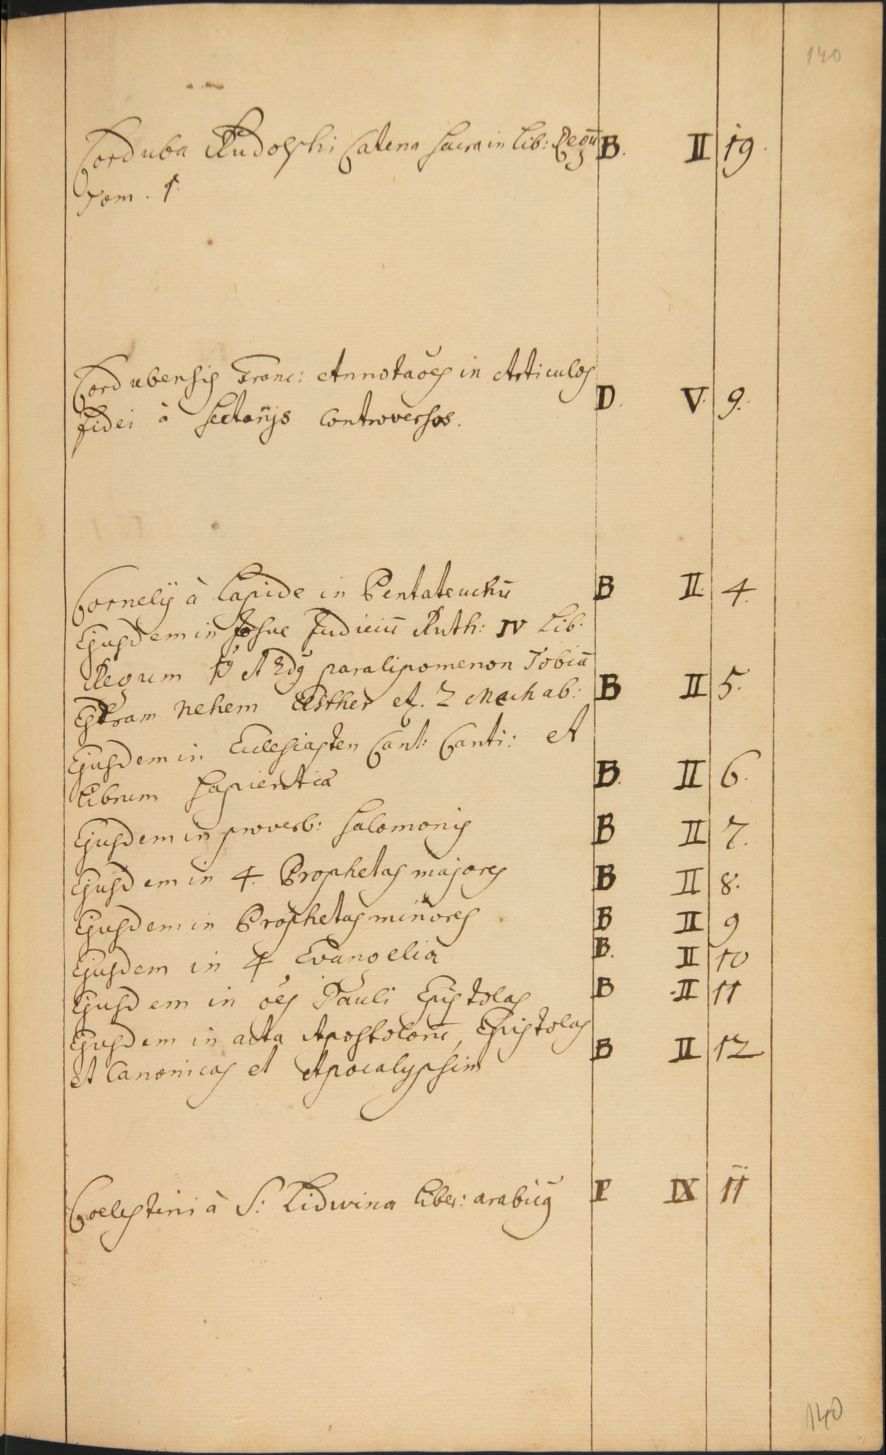 140
Corduba Rudolphi Catena sacra in Lib: Regū B. II 19.
Tom. 1.
Cordubensis Franc: Annotaōes in Articulos
fidei à sectarijs controversos. D. V. 9.
Cornelij à Lapide in Pentateuchū B II. 4.
Ejusdem in Josue Judicū Ruth: IV Lib:
Regum 1ō et 2dō paralipomenon Tobiā
Esdram Nehem Esther et. 2 Machab: B II 5.
Ejusdem in Eclesiasten Cant: Canti: et
Librum Sapientiæ B. II 6.
Ejusdem in proverb: Salomonis B II 7.
Ejusdem in 4. Prophetas majores B II 8.
Ejusdem in Prophetas minores. B II 9
Ejusdem in 4 Evangelia B. II 10
Ejusdem in ōes Pauli Epistolas B II 11
Ejusdem in acta Apostolorū, Epistolas
et Canonicas et Apocalypsim B II 12
Coelestini à S: Lidwina Liber: arabicū F IX 11
140